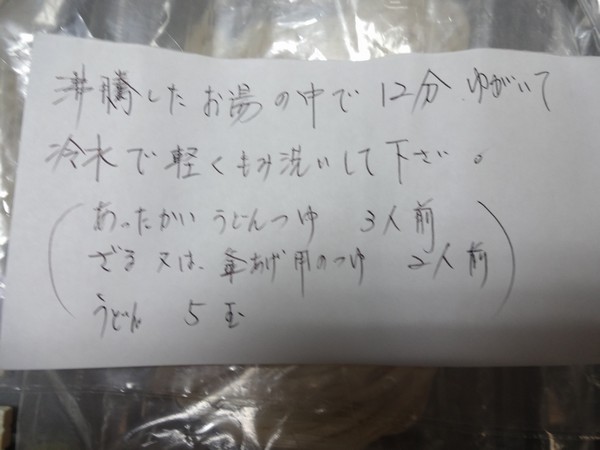 沸騰したお湯の中で 12分 ゆがいて
冷水で軽くもみ洗いして下さい。
(あったかいうどんつゆ 3人前
ざる又は、釜あげ用のつゆ 2人前)
うどん 5玉